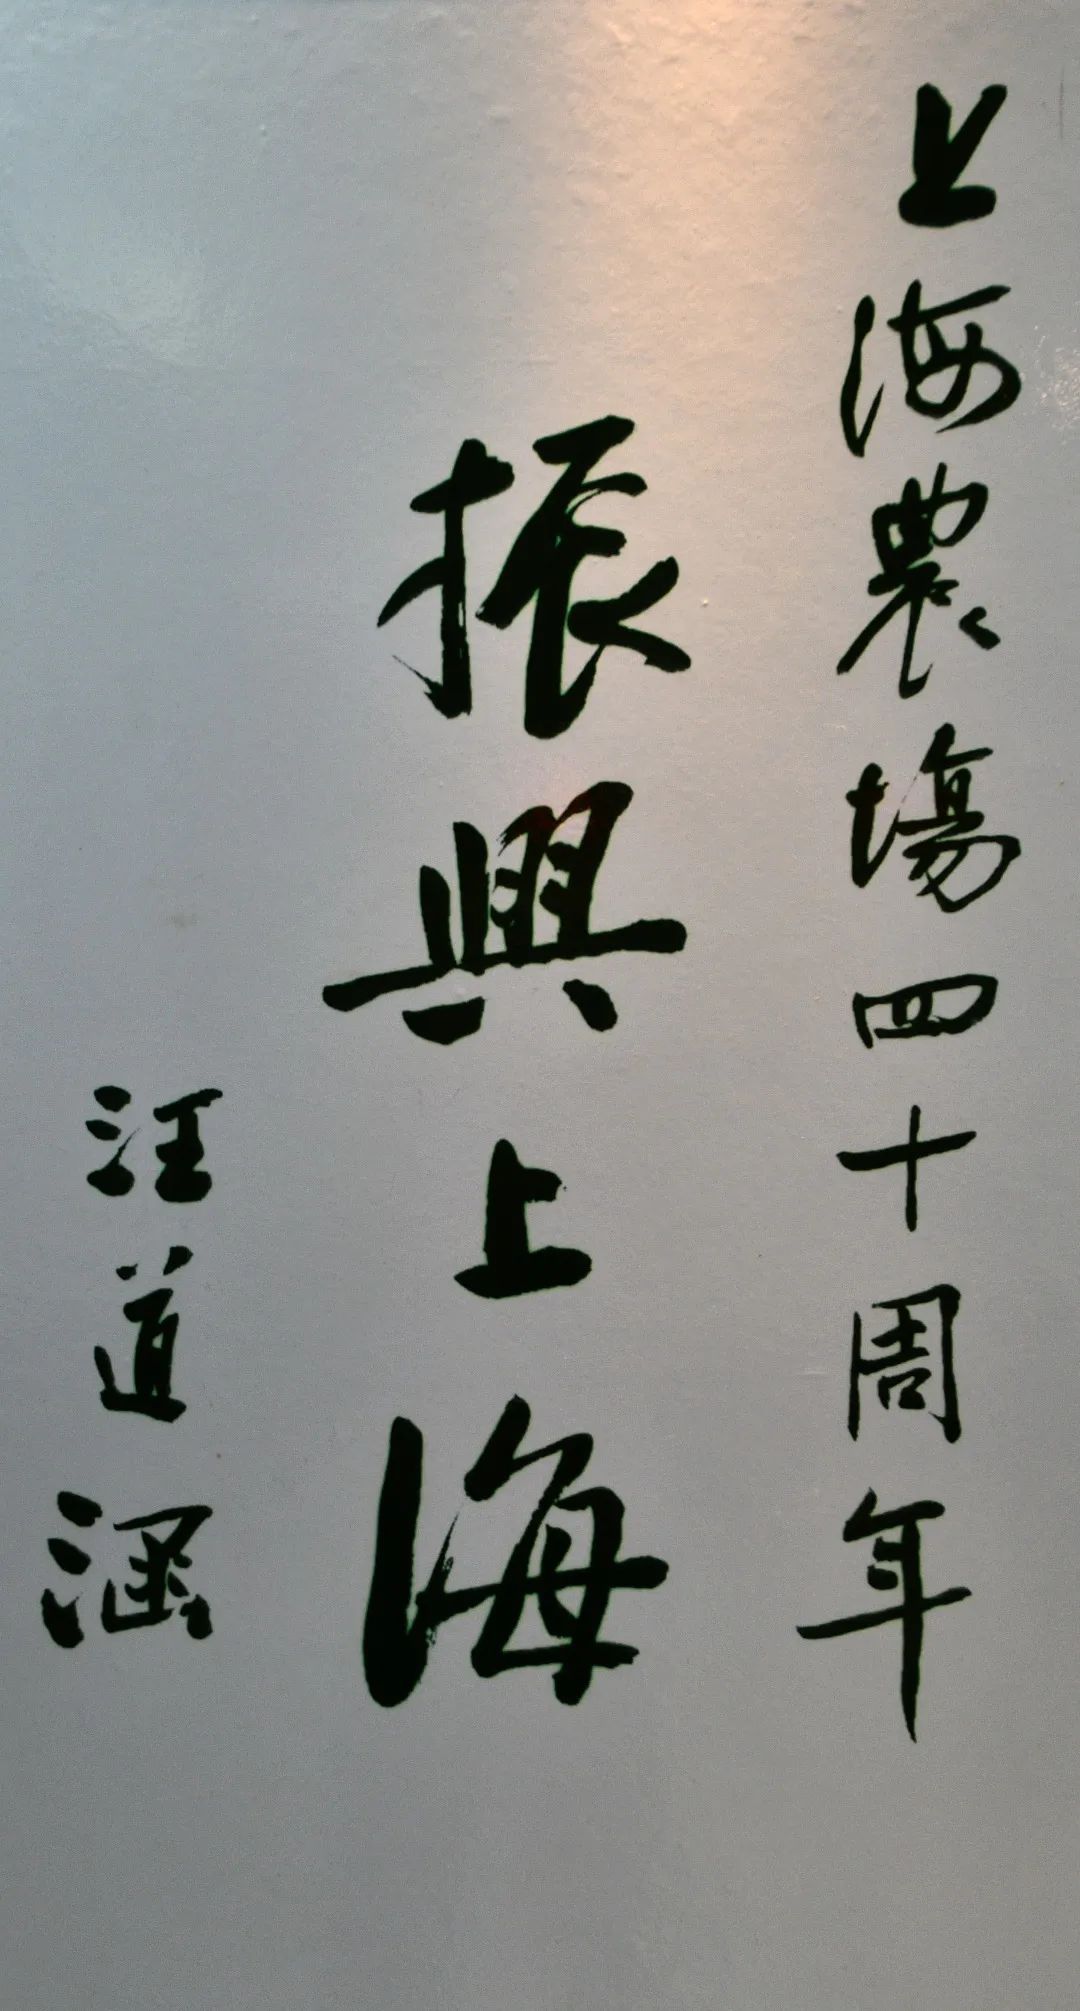 上海農場四十周年
振興上海
汪道涵